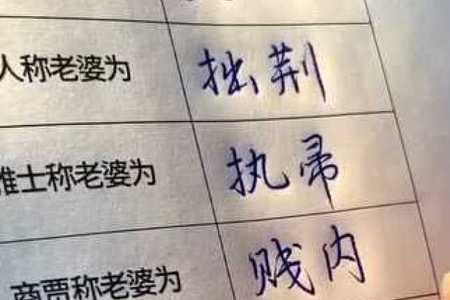 人称老婆为 拙荆
雅士称老婆为 执帚
商贾称老婆为 贱内